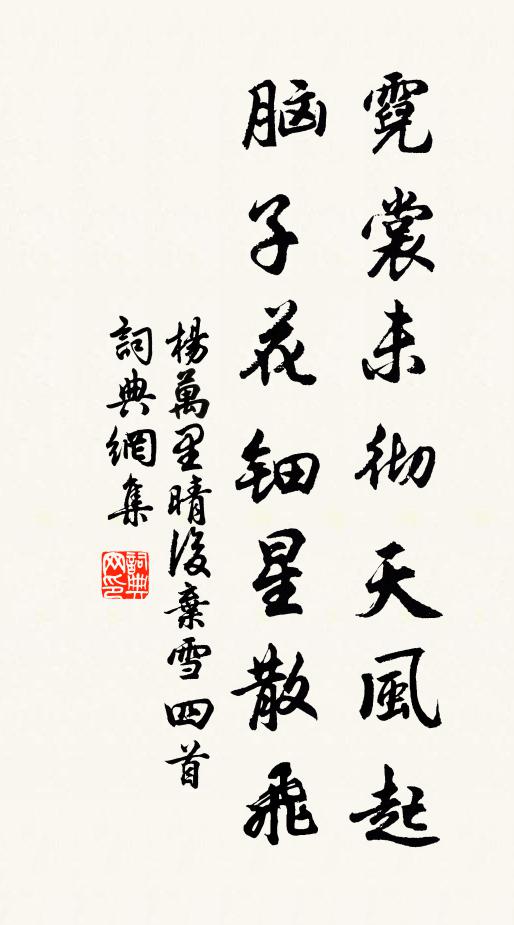 霓裳未彻天風起
脑子花钿星散飛
楊萬里晴後棄雪四首
詞典網集
詞典网印